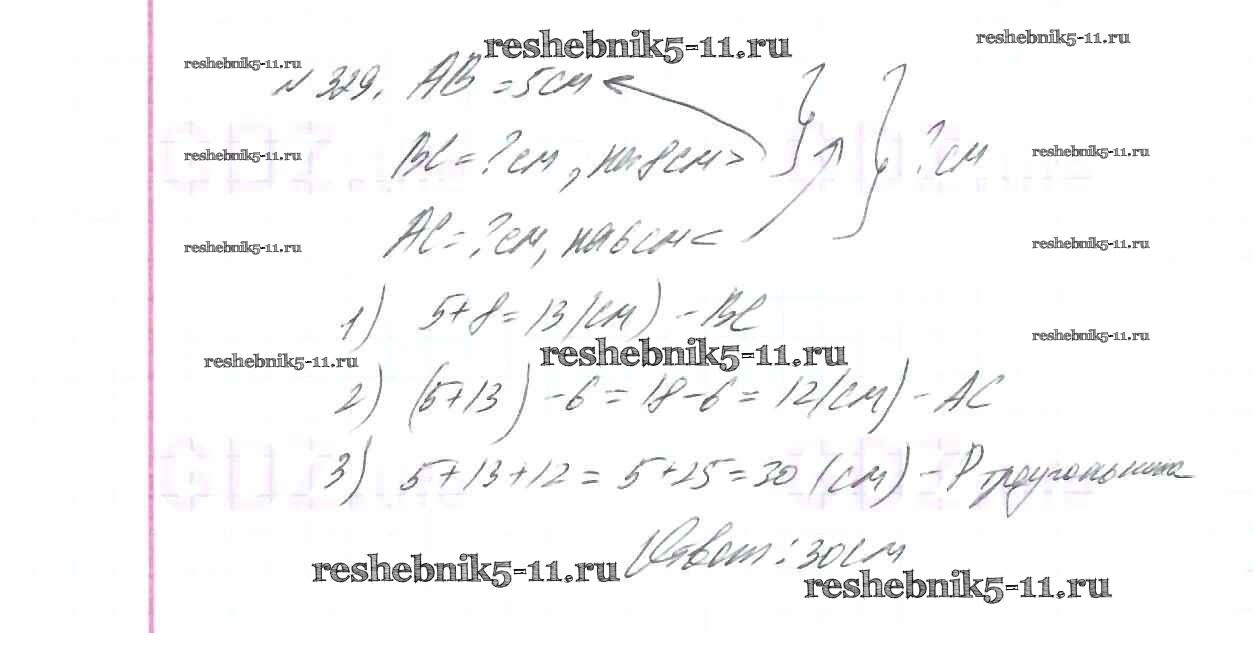 reshebnik5-11.ru
reshebnik5-11.ru
reshebnik5-11.ru
№ 329. AB = 5см
reshebnik5-11.ru
BC = ? см, на 8см >
? см
reshebnik5-11.ru
reshebnik5-11.ru
AC = ? см, на 6 см <
reshebnik5-11.ru
1) 5+8=13(см) - BC
reshebnik5-11.ru
reshebnik5-11.ru
reshebnik5-11.ru
2) (5+13) - 6 = 18 - 6 = 12(см) - AC
3) 5+13+12 = 5+25 = 30 (см) - P треугольника
Ответ: 30см
reshebnik5-11.ru
reshebnik5-11.ru